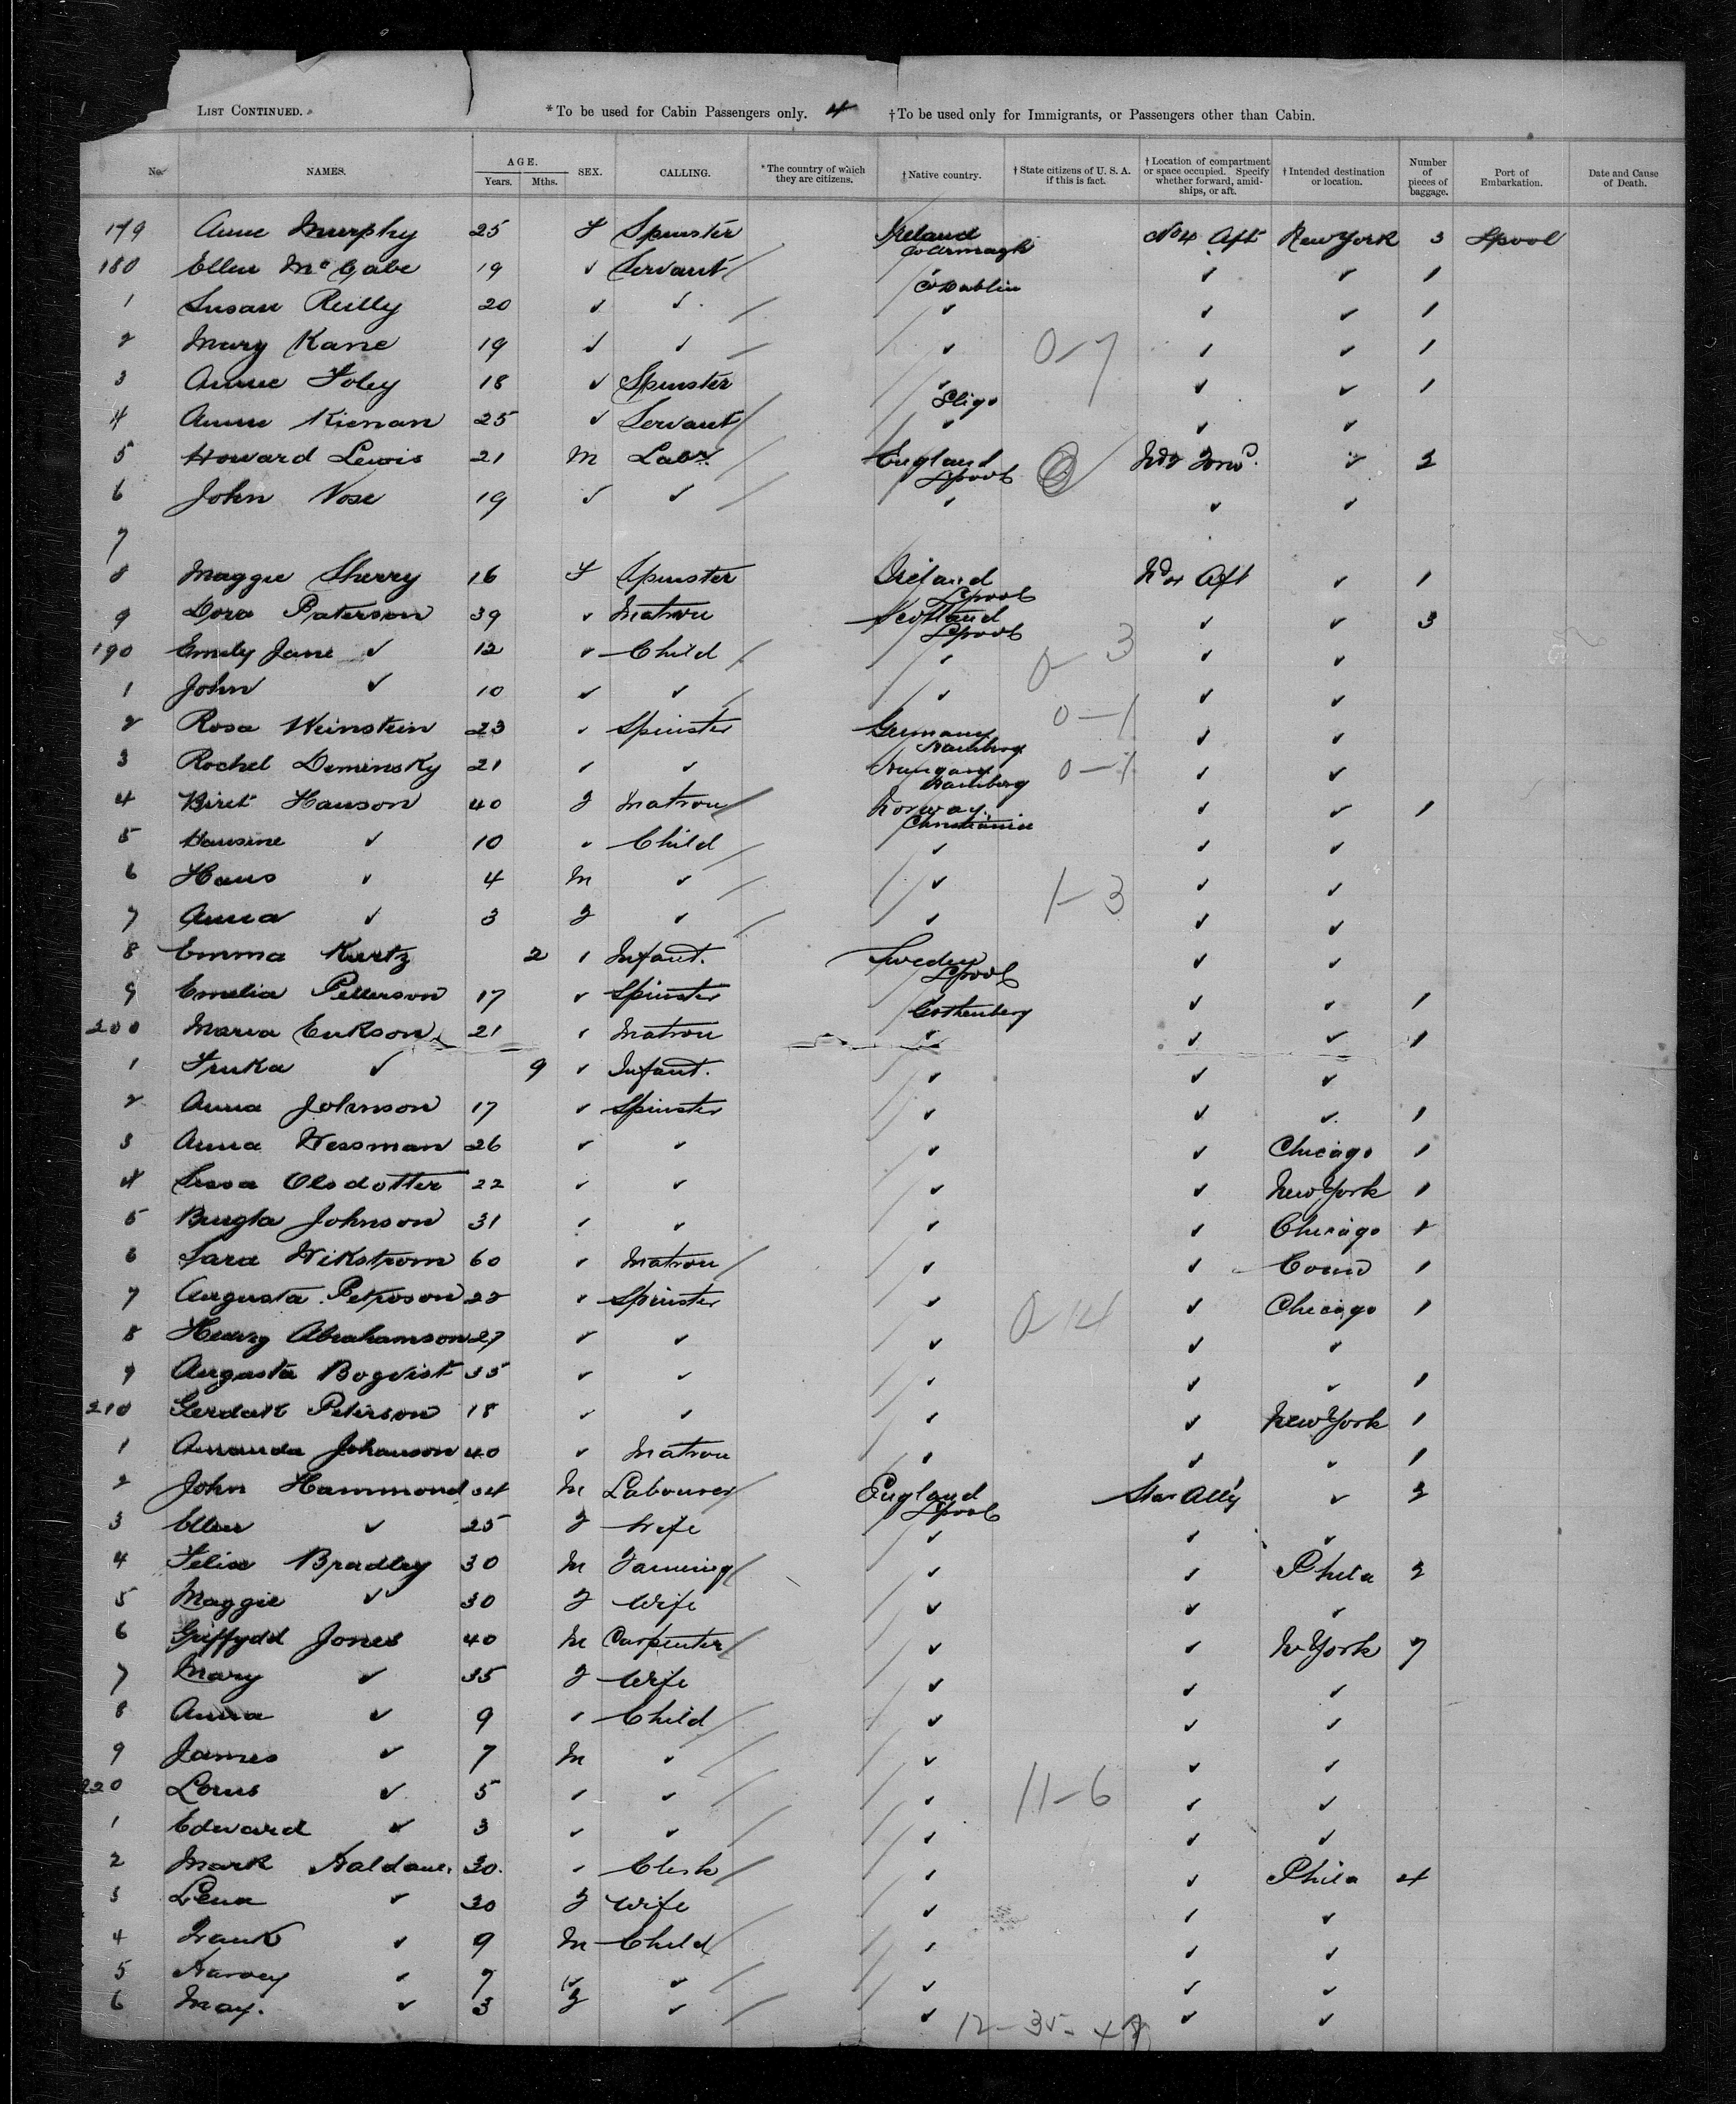 LIST CONTINUED. *To be used for Cabin Passengers only. 4 †To be used only for Immigrants, or Passengers other than Cabin.
No. NAMES. AGE. Years. Mths. SEX. CALLING. *The country of which they are citizens. †Native country. †State citizens of U. S. A. if this is fact. †Location of compartment or space occupied. Specify whether forward, amidships, or aft. †Intended destination or location. Number of pieces of baggage. Port of Embarkation. Date and Cause of Death.
179 Anne Murphy 25 F Spinster Ireland Co Armagh No 4 Aft New York 3 Lpool
180 Ellen McCabe 19 ✓ Servant Co Dublin ✓ ✓ 1
1 Susan Reilly 20 ✓ ✓ ✓ ✓ ✓ 1
2 Mary Kane 19 ✓ ✓ ✓ 0-7 ✓ ✓ 1
3 Annie Foley 18 ✓ Spinster ✓ Sligo ✓ ✓ 1
4 Annie Kienan 25 ✓ Servant ✓ ✓ ✓
5 Howard Lewis 21 M Labr. England Lpool ✓ 2
6 John Vose 19 ✓ ✓ ✓ ✓ ✓
7
8 Maggie Sherry 16 F Spinster Ireland Lpool No 4 Aft ✓ 1
9 Dora Paterson 39 ✓ Matron Scotland Lpool ✓ ✓ 3
190 Emily Jane ✓ 12 ✓ Child ✓ 0-3 ✓ ✓
1 John ✓ 10 ✓ ✓ ✓ ✓ ✓
2 Rosa Weinstein 23 ✓ Spinster Germany Hamburg 0-1 ✓ ✓
3 Rochel Deminsky 21 ✓ ✓ Hungary Hamburg 0-1 ✓ ✓
4 Biret Hanson 40 F Matron Norway Christiania ✓ ✓ 1
5 Hansine ✓ 10 ✓ Child ✓ ✓ ✓
6 Hans ✓ 4 M ✓ ✓ 1-3 ✓ ✓
7 Anna ✓ 3 F ✓ ✓ ✓ ✓
8 Emma Kurtz 2 ✓ Infant. Sweden Lpool ✓ ✓
9 Emelia Petterson 17 ✓ Spinster Gothenberg ✓ ✓ 1
200 Maria Erikson 21 ✓ Matron ✓ ✓ ✓ 1
1 ✓ 9 ✓ Infant. ✓ ✓ ✓
2 Anna Johnson 17 ✓ Spinster ✓ ✓ ✓ 1
3 Anna Wessman 26 ✓ ✓ ✓ ✓ Chicago 1
4 Olsdotter 22 ✓ ✓ ✓ ✓ New York 1
5 Johnson 31 ✓ ✓ ✓ ✓ Chicago 1
6 Sara Wikstrom 60 ✓ Matron ✓ ✓ Conn 1
7 Augusta 22 ✓ Spinster ✓ 0-14 ✓ Chicago 1
8 Henry Abrahamson 27 ✓ ✓ ✓ ✓ ✓
9 Augusta Boqvist 35 ✓ ✓ ✓ ✓ ✓ 1
210 Peterson 18 ✓ ✓ ✓ ✓ New York 1
1 Amanda Johanson 40 ✓ Matron ✓ ✓ ✓ 1
2 John Hammond 34 M Labourer England Lpool ✓ 2
3 Ellen ✓ 25 F Wife ✓ ✓ ✓
4 Felix Bradley 30 M ✓ ✓ Phila 2
5 Maggie ✓ 30 F Wife ✓ ✓ ✓
6 Griffydd Jones 40 M Carpenter ✓ ✓ N York 7
7 Mary ✓ 35 F Wife ✓ ✓ ✓
8 Anna ✓ 9 ✓ Child ✓ ✓ ✓
9 James ✓ 7 M ✓ ✓ ✓ ✓
220 Louis ✓ 5 ✓ ✓ ✓ 11-6 ✓ ✓
1 Edward ✓ 3 ✓ ✓ ✓ ✓ ✓
2 Mark Haldane 30 ✓ Clerk ✓ ✓ Phila 4
3 Lena ✓ 30 F Wife ✓ ✓ ✓
4 Frank ✓ 9 M Child ✓ ✓ ✓
5 Harvey ✓ 7 ✓ ✓ ✓ ✓ ✓
6 May. ✓ 3 F ✓ ✓ ✓ ✓
12-35-47